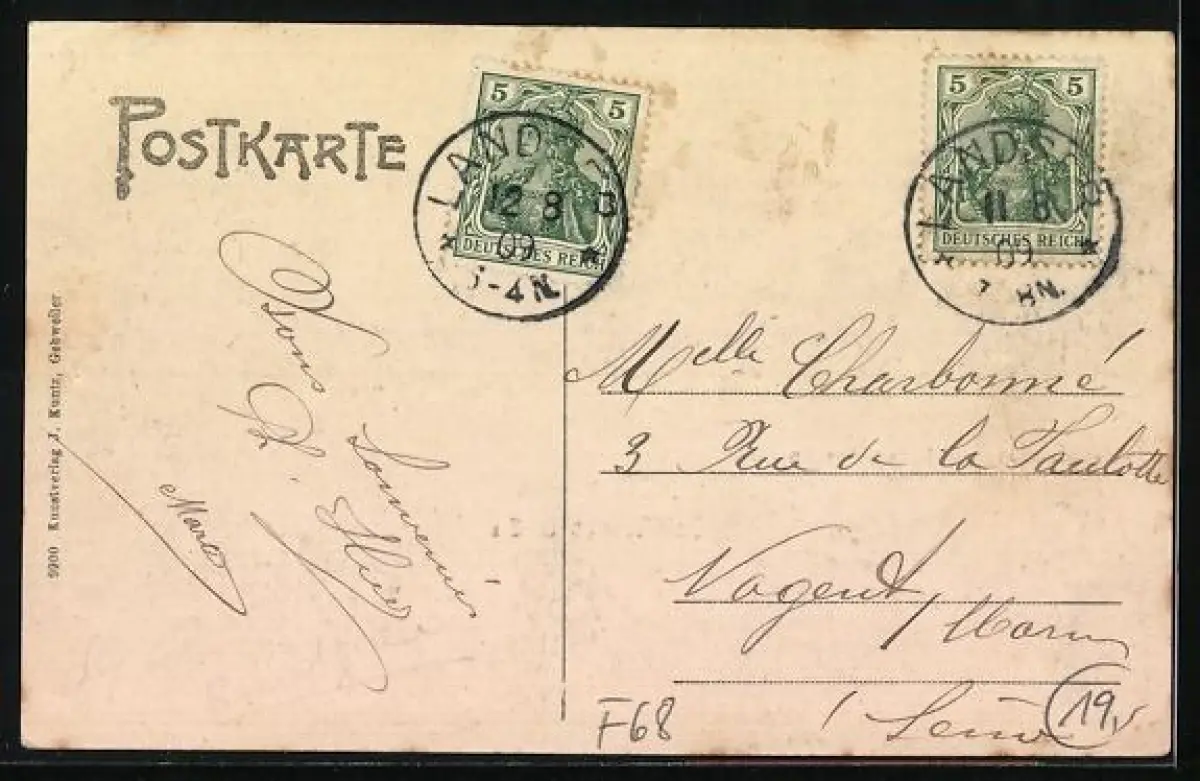 POSTKARTE
5 5
DEUTSCHES REICH
LAND
B
12 8
09
-4 N.
5 5
DEUTSCHES REICH
LANDS
B
11 8
09
8N.
9900 Kunstverlag J. Kuntz, Gebweiler
Bons
Souvenirs
Marie
Melle Charbonné
3 Rue de la
Nogent / Marne
Seine
F68
19